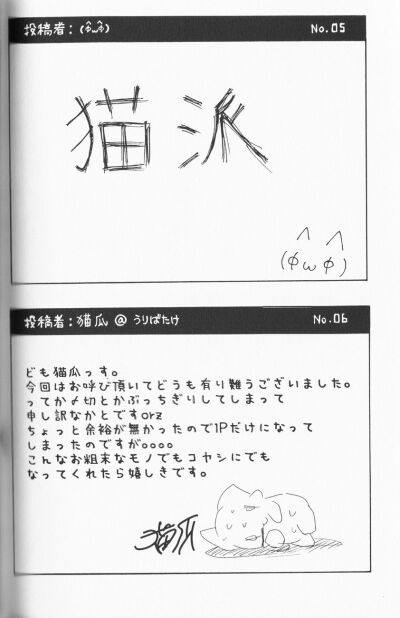 投稿者：(ΦωΦ) No.05
猫派
(ΦωΦ)
投稿者：猫瓜 @ うりぱたけ No.06
ども猫瓜っす。
今回はお呼び頂いてどうも有り難うございました。
ってか〆切とかぶっちぎりしてしまって
申し訳なかとですorz
ちょっと余裕が無かったので1Pだけになって
しまったのですが｡｡｡｡
こんなお粗末なモノでもコヤシにでも
なってくれたら嬉しきです。
猫瓜